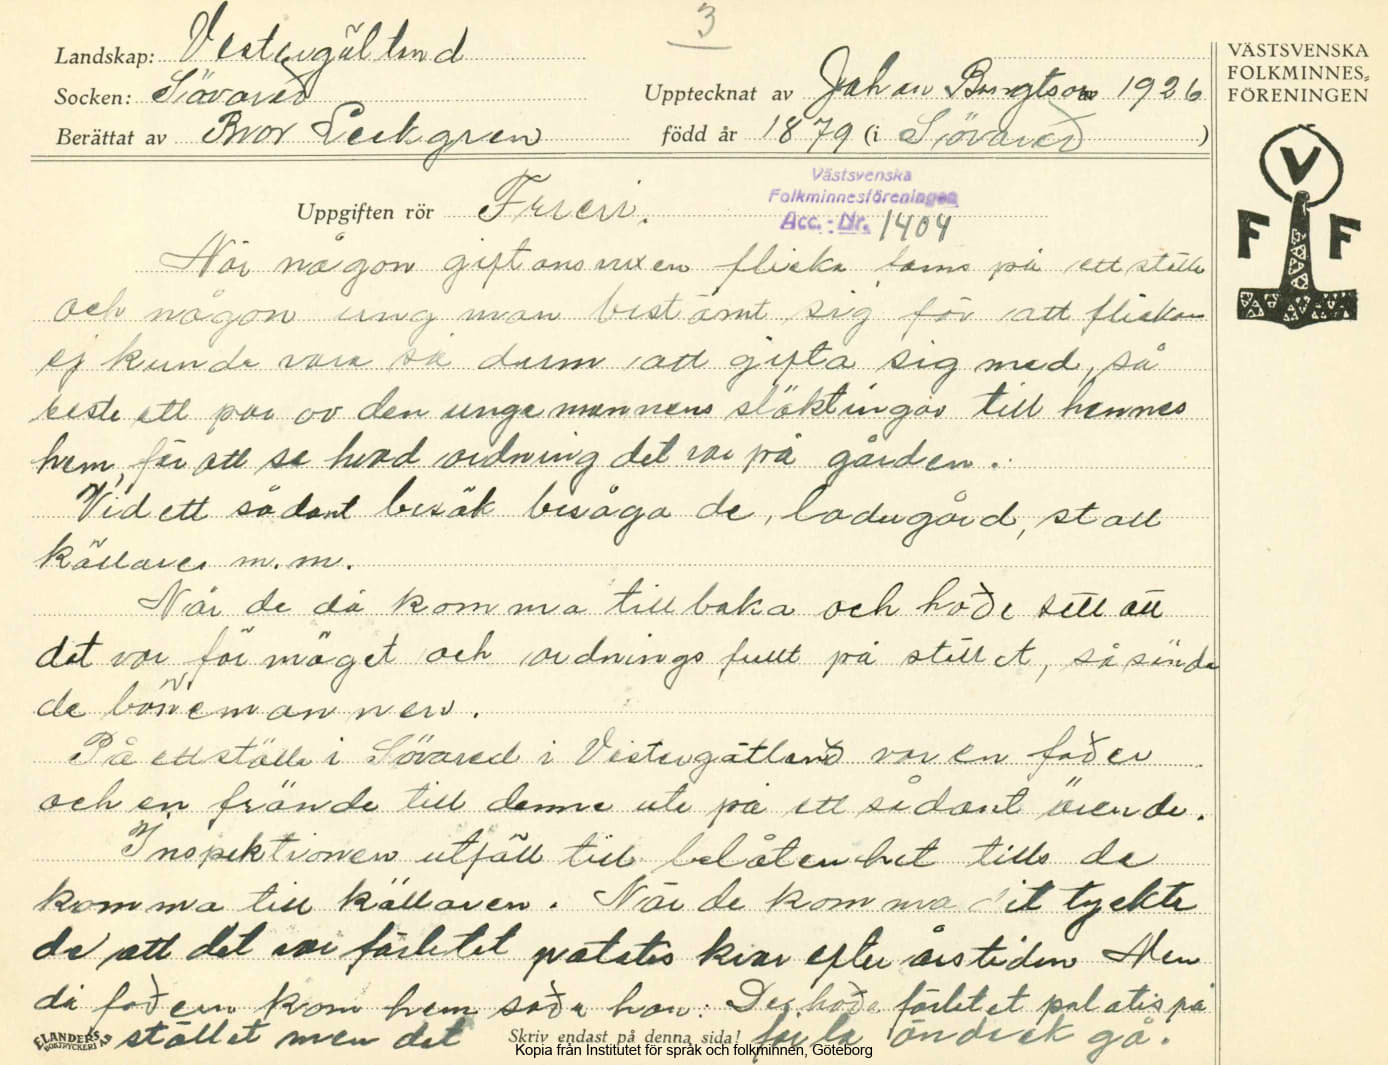 3
Landskap: Vestergötland
Socken: Sövared
Upptecknat av Johan Bengtson 1926
Berättat av Bror Leekgren
född år 1879 (i Sövared)
VÄSTSVENSKA
FOLKMINNES-
FÖRENINGEN
V
F F
Västsvenska
Folkminnesföreningen
Acc. - Nr. 1404
Uppgiften rör Frieri.
När någon giftasvuxen flicka fanns på ett ställe
och någon ung man bestämt sig för att flickan
ej kunde vara så dum att gifta sig med, så
reste ett par av den unge mannens släktingar till hennes
hem, för att se hvad ordning det var på gården.
Vid ett sådant besök besågo de, ladugård, stall
källare m.m.
När de då komma tillbaka och hade sett att
det var förmöget och ordningsfullt på stället, så sände
de bönemannen.
På ett ställe i Sövared i Vestergötland var en fader
och en frände till denne ute på ett sådant ärende.
Inspektionen utföll till belåtenhet tills de
komma till källaren. När de komma dit tyckte
de att det var förlitet potatis kvar efter årstiden Men
då fadern kom hem sade han: De hade förlitet potatis på
stället men det får la ändock gå.
ELANDERS
BOKTRYCKERI AB
Skriv endast på denna sida!
Kopia från Institutet för språk och folkminnen, Göteborg